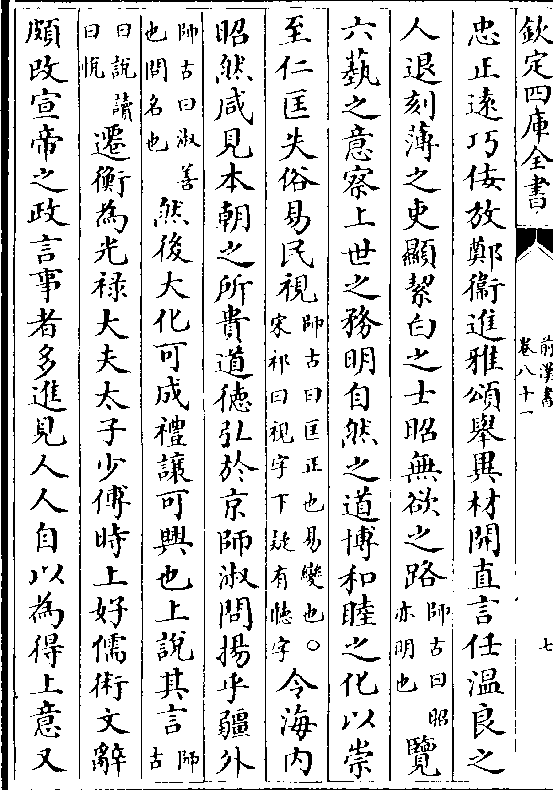 欽定四庫全書
前漢書
卷八十一
七
忠正遠巧佞放鄭衞進雅頌舉異材開直言任溫良之
人退刻薄之吏顯絜白之士昭無欲之路師古曰昭亦明也覽
六藝之意察上世之務明自然之道博和睦之化以崇
至仁匡失俗易民視師古曰匡正也易變也○宋祁曰視字下疑有聽字令海内
昭然咸見本朝之所貴道德弘於京師淑問揚乎疆外
師古曰淑善也問名也然後大化可成禮讓可興也上說其言師古
曰說讀曰悅遷衡為光禄大夫太子少傅時上好儒術文辭
頗改宣帝之政言事者多進見人人自以為得上意又